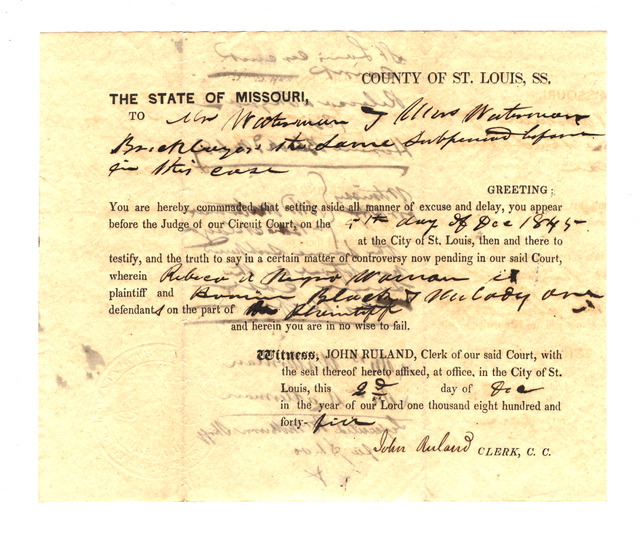 COUNTY OF ST. LOUIS, SS.
THE STATE OF MISSOURI,
TO Mr Waterman & Mrs Waterman
Bricklayer the same subpoenad before
in this case
GREETING:
You are hereby commnaded, that setting aside all manner of excuse and delay, you appear
before the Judge of our Circuit Court, on the day of Dec 1845
at the City of St. Louis, then and there to
testify, and the truth to say in a certain matter of controversy now pending in our said Court,
wherein Rebeca a Negro Woman is
plaintiff and Black & Melody are
defendants on the part of Plaintiff
and herein you are in no wise to fail.
Witness, JOHN RULAND, Clerk of our said Court, with
the seal thereof hereto affixed, at office, in the City of St.
Louis, this 2d day of Dec
in the year of our Lord one thousand eight hundred and
forty-five
John Ruland CLERK, C. C.